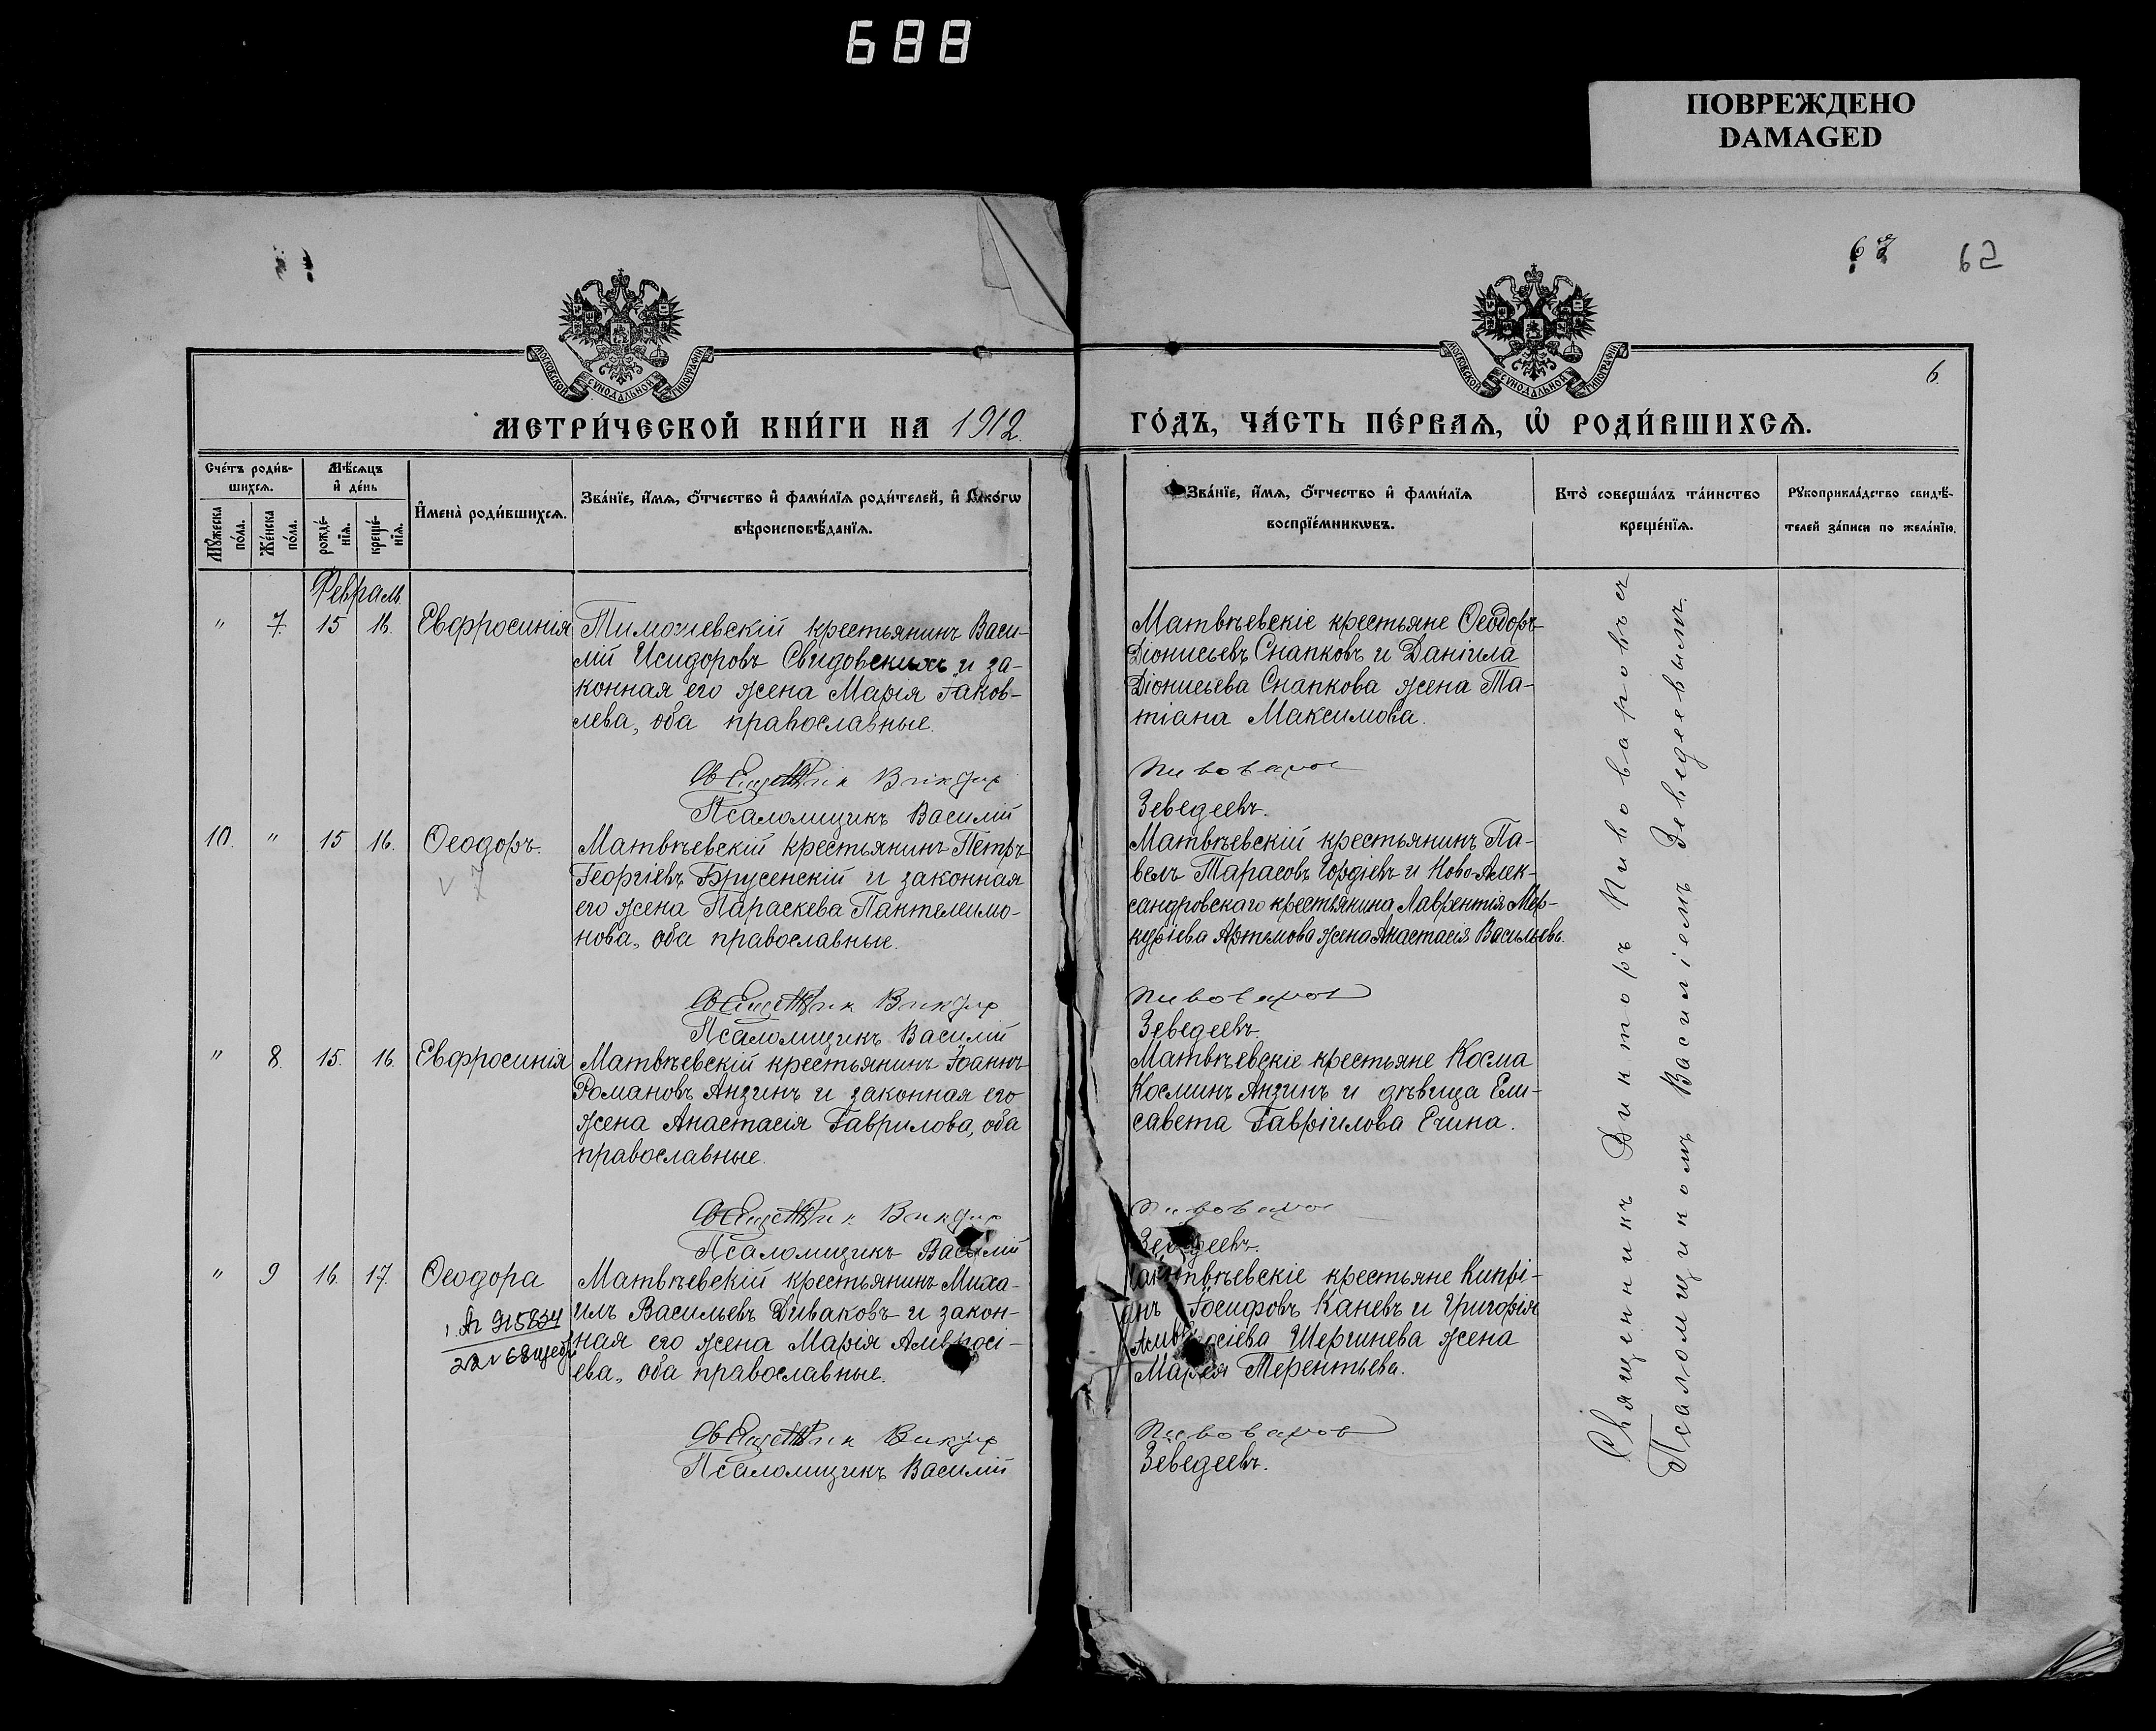 688
ПОВРЕЖДЕНО
DAMAGED
62
МОСКОВСКОЙ СѴНОДАЛЬНОЙ ТИПОГРАФІИ
МОСКОВСКОЙ СѴНОДАЛЬНОЙ ТИПОГРАФІИ
6.
МЕТРИ́ЧЕСКОЙ КНИ́ГИ НА 1912.
ГО́ДЪ, ЧА́СТЬ ПЕ́РВАѦ, Ѡ РОДИ́ВШИХСѦ.
Сче́тъ роди́в-
шихсѧ.
Мѣ́сѧцъ
и҆ де́нь
Мꙋ́жеска по́ла.
Же́нска по́ла.
рожде́-
нїѧ.
креще́-
нїѧ.
И҆мена̀ роди́вшихсѧ.
Зва́нїе, и҆́мѧ, ѻ҆́тчество и҆ фами́лїѧ роди́телей, и҆ какогѡ
вѣроисповѣ́данїѧ.
Зва́нїе, и҆́мѧ, ѻ҆́тчество и҆ фами́лїѧ
воспрїе́мникѡвъ.
Кто̀ соверша́лъ та́инство
креще́нїѧ.
Рꙋкоприкла́дство свидѣ́-
телей за́писи по жела́нїю.
Февраль.
" 7. 15 16. Евфросинія
Тимошевскій крестьянинъ Васи-
лій Исидоровъ Свидовскихъ и за-
конная его жена Марія Іаков-
лева, оба православные.
Священник Виктор
Псаломщикъ Василій
Матвѣевскіе крестьяне Ѳеодоръ
Діонисьевъ Снапковъ и Даніила
Діонисьева Снапкова жена Та-
тіана Максимова.
Пивоваров
Зеведеевъ.
10. " 15 16. Ѳеодоръ.
Матвѣевскій крестьянинъ Петръ
Георгіевъ Брусенскій и законная
его жена Параскева Пантелеимо-
нова, оба православные.
Священник Виктор
Псаломщикъ Василій
Матвѣевскій крестьянинъ Па-
велъ Тарасовъ Гордіевъ и Ново-Алек-
сандровскаго крестьянина Лаврентія Мер-
курієва Артемова жена Анастасія Васильева.
Пивоваров
Зеведеевъ.
" 8. 15. 16. Евфросинія
Матвѣевскій крестьянинъ Іоаннъ
Романовъ Анзинъ и законная его
жена Анастасія Гаврилова, оба
православные.
Священник Виктор
Псаломщикъ Василій
Матвѣевскіе крестьяне Косма
Косминъ Анзинъ и дѣвица Ели-
савета Гавріилова Ечина.
Пивоваров
Зеведеевъ.
" 9 16. 17. Ѳеодора
Матвѣевскій крестьянинъ Миха-
илъ Васильевъ Диваковъ и закон-
ная его жена Марія Амвросі-
ева, оба православные.
Священник Виктор
Псаломщикъ Василій
Матвѣевскіе крестьяне Кипрі-
анъ Іосифовъ Каневъ и Григорія
Амвросіева Шергинева жена
Марія Терентьева.
Пивоваров
Зеведеевъ.
Священникъ Викторъ Пивоваровъ съ
Псаломщикомъ Василіемъ Зеведеевымъ.